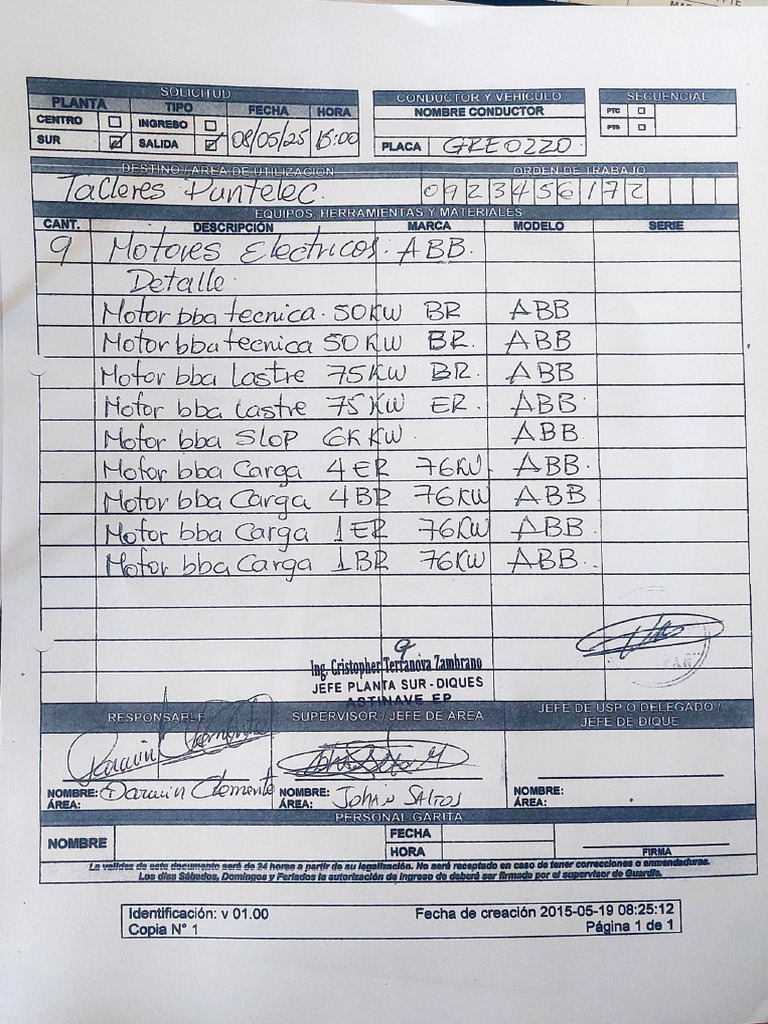 SOLICITUD
PLANTA TIPO FECHA HORA
CENTRO INGRESO
SUR SALIDA 08/05/25 15:00
CONDUCTOR Y VEHICULO
NOMBRE CONDUCTOR
PLACA GREO220
SECUENCIAL
PTC
PTS
DESTINO / AREA DE UTILIZACION ORDEN DE TRABAJO
Tacleres Puntelec. 0923456172
EQUIPOS, HERRAMIENTAS Y MATERIALES
CANT. DESCRIPCIÓN MARCA MODELO SERIE
9 Motores Electricos. ABB.
Detalle
Motor bba tecnica. 50KW BR ABB
Motor bba tecnica 50KW BR. ABB
Motor bba Lastre 75KW BR. ABB
Motor bba Lastre 75KW ER. ABB
Motor bba SLOP KW. ABB.
Motor bba Carga 4 ER 76KW ABB.
Motor bba Carga 4 BR 76KW ABB
Motor bba Carga 1 ER 76KW ABB.
Motor bba Carga 1 BR 76KW ABB..
Ing. Cristopher Terranova Zambrano
JEFE PLANTA SUR - DIQUES
ASTINAVE EP
RESPONSABLE SUPERVISOR / JEFE DE ÁREA JEFE DE USP O DELEGADO / JEFE DE DIQUE
Darwin Clemente
NOMBRE: Darwin Clemente NOMBRE: Johan Saltos NOMBRE:
ÁREA: ÁREA: ÁREA:
PERSONAL GARITA
NOMBRE FECHA
HORA FIRMA
La validez de este documento será de 24 horas a partir de su legalización. No será receptado en caso de tener correcciones o enmendaduras.
Los días Sábados, Domingos y Feriados la autorización de ingreso de deberá ser firmada por el supervisor de Guardia.
Identificación: v 01.00 Fecha de creación 2015-05-19 08:25:12
Copia N° 1 Página 1 de 1